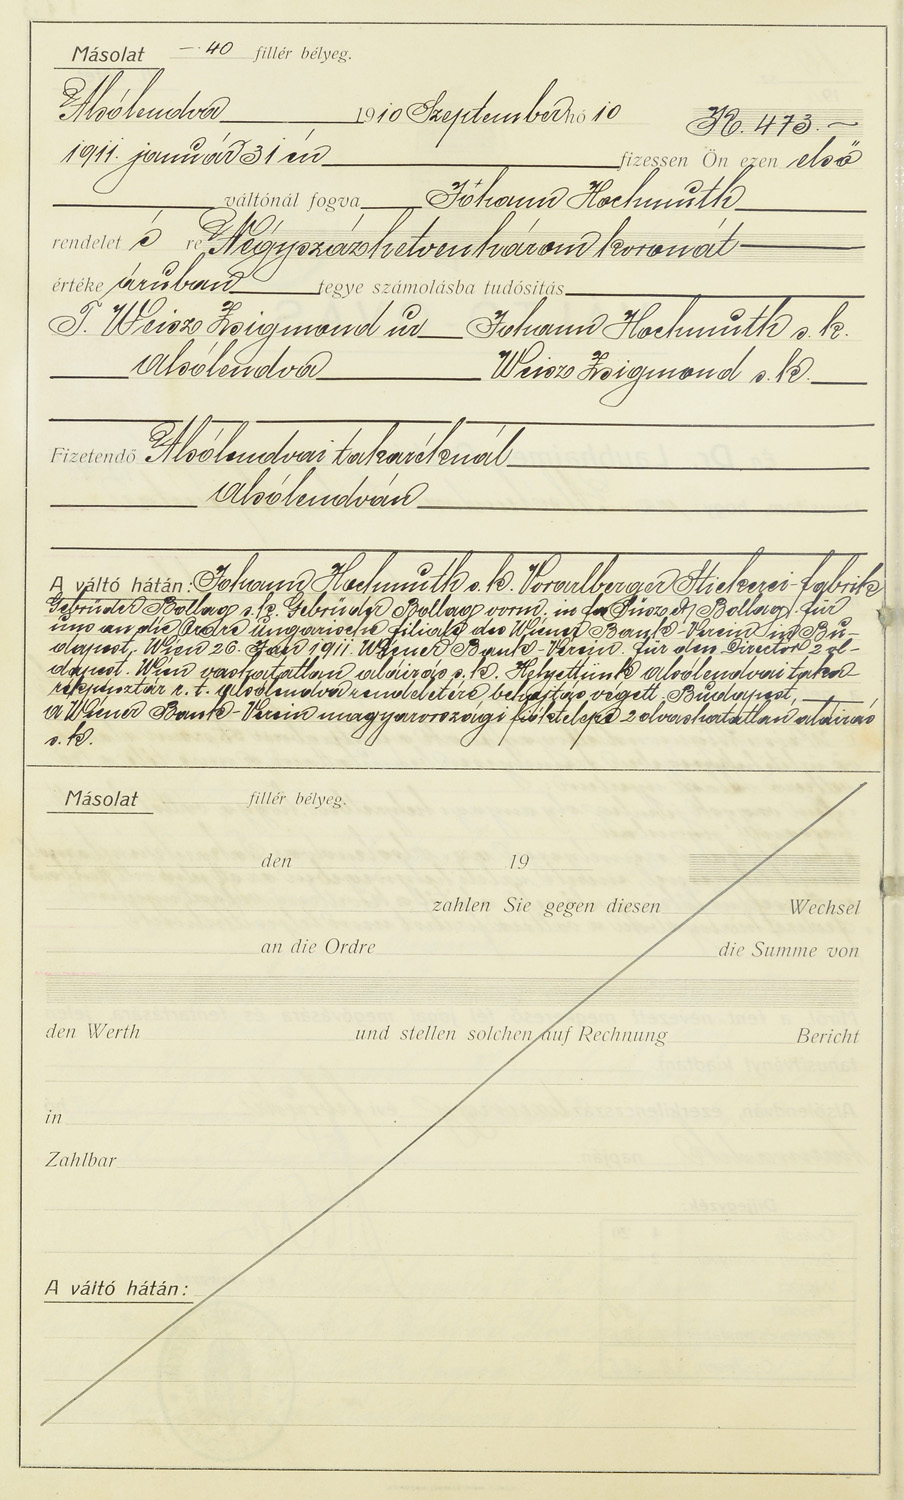 Másolat — 40 fillér bélyeg.
Alsólendva 1910 Szeptember hó 10 K. 473. —
1911. január 31 én fizessen Ön ezen első
váltónál fogva Johann Hochmuth
rendelet é re Négyszázhetvenhárom koronát
értéke áruban tegye számolásba tudósítás
T. Weisz Zsigmond úr Johann Hochmuth s. k.
Alsólendva Weisz Zsigmond s. k.
Fizetendő Alsólendvai takaréknál
Alsólendván
A váltó hátán: Johann Hochmuth s. k. Vorarlberger Stickerei-fabrik
Gebrüder Bollag s. k. Gebrüder Bollag vorm. Bollag. für
uns an die Ordre ungarische filiale des Wiener Bank-Verein in Bu-
dapest. Wien 26. Jan 1911. Wiener Bank-Verein. für den Director
dapest. Wien aláírás s. k. Helyettünk alsólendvai taka-
rékpénztár r. t. Alsólendva rendeletére behajtás végett. Budapest,
a Wiener Bank-Verein magyarországi fióktelepe 2 olvashatatlan aláírás
s. k.
Másolat fillér bélyeg.
den 19
zahlen Sie gegen diesen Wechsel
an die Ordre die Summe von
den Werth und stellen solchen auf Rechnung Bericht
in
Zahlbar
A váltó hátán: